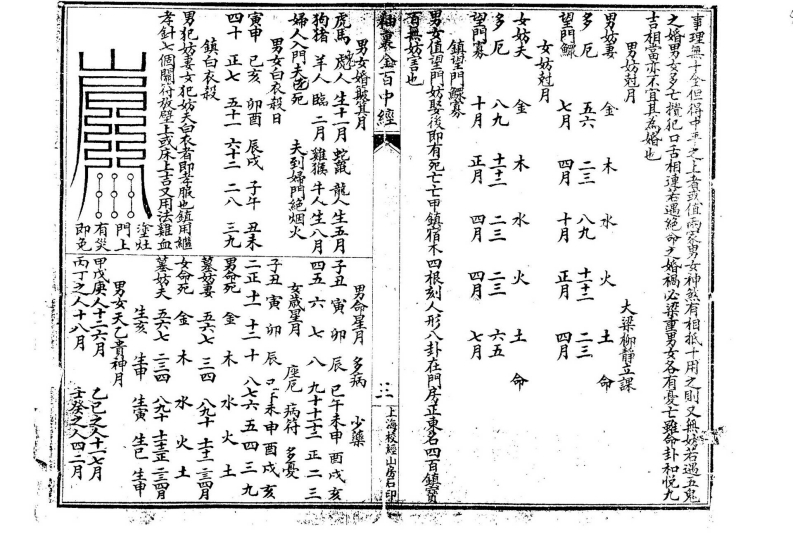 事理無十全但得中平之上者或值兩家男女神煞有相抵十用之則又無妨若遇五鬼
之婚男女多亡攬犯口舌相連若遇絕命之婚禍必深重男女各有憂亡雖命卦和悅九
吉相當亦不宜其為婚也
大梁柳靜立課
男女妨尅月
男妨妻 金 木 水 火 土 命
多厄 五六 二三 八九 十十二 二三
望門鰥 七月 四月 十月 正月 四月
女妨尅月
女妨夫 金 木 水 火 土 命
多厄 八九 十十二 二三 二三 六五
望門寡 十月 正月 四月 四月 七月
鎮望門鰥寡
男女值望門妨娶後即有死亡亡甲鎮宿木四根刻人形八卦在門房正東名四百鎮
百無妨言也
袖裏金百中經
三
上海校經山房石印
男女婚
虎馬 人 生十一月 蛇鼠 龍人生五月
狗猪 羊人 臨二月 雞猴 牛人生八月
婦人入門夫 死 夫到婦門絕烟火
男女白衣殺日
寅申 己亥 卯酉 辰戌 子午 丑未
四十 正七 五十一 六十二 二八 三九
鎮白衣殺
男犯妨妻女犯妨夫白衣者即孝服也鎮用
孝針七個關符放壁上或床上吉又用法雞血
塗灶
門上
有災
即免
男命星月 多病 少藥
子丑 寅 卯 辰 巳午未申 酉戌亥
四五 六 七 八 九十十十二正 二三
女歲星月 座厄 病符 多憂
子丑 寅 卯 辰 未申 酉戌亥
二正 十一 十二 十 八七六五四三九
男命死 金 木 水 火 土
墓妨妻 五六七 三四 八九十 十十二 三四月
女命死 金 木 水 火 土
墓妨夫 五六七 二三四 八九十 十十二正 二三四月
生亥 生申 生寅 生巳 生申
男女天乙貴神月
甲戊庚人十二六月 乙己之人十一七月
丙丁之人十八月 壬癸之人四二月